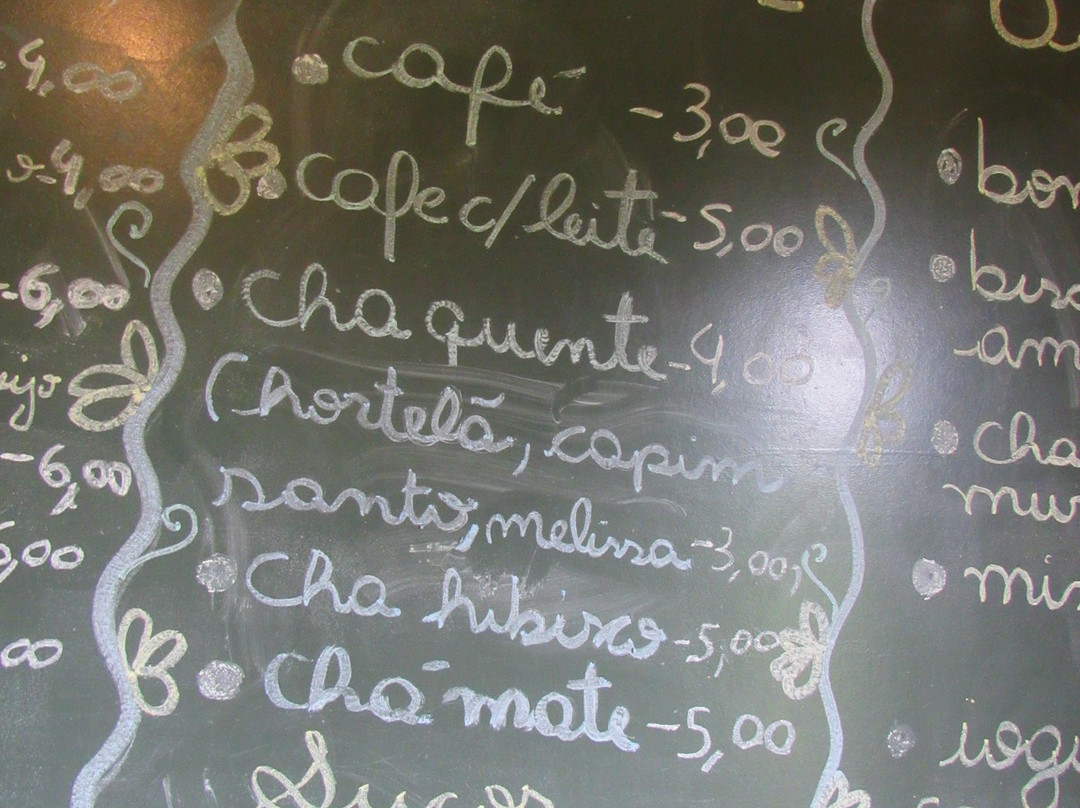 4,00
4,00
-6,00
-6,00
00
café -3,00
cafe c/leite -5,00
cha quente -4,00
(hortelã, capim
santo, melissa -3,00
Cha hibisco -5,00
Chá mate -5,00
Sucos
cha